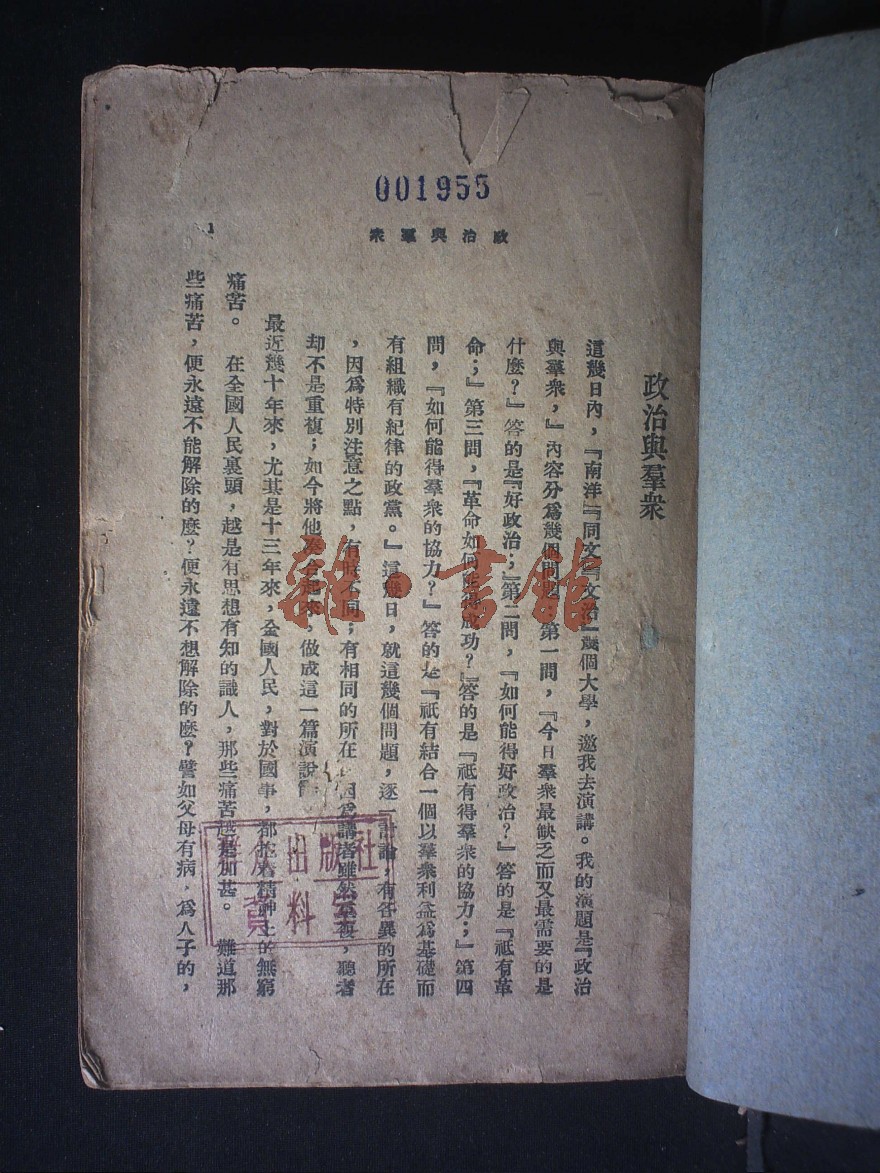 001955
政治與羣衆
1
政治與羣衆
這幾日內，『南洋』『同文』『文治』幾個大學，邀我去演講。我的演題是『政治
與羣衆，』內容分爲幾個問題，第一問，『今日羣衆最缺乏而又最需要的是
什麼？』答的是『好政治；』第二問，『如何能得好政治？』答的是『祇有革
命；』第三問，『革命如何能得成功？』答的是『祇有得羣衆的協力；』第四
問，『如何能得羣衆的協力？』答的是『祇有結合一個以羣衆利益爲基礎而
有組織有紀律的政黨。』這幾日，就這幾個問題，逐一討論，有各異的所在
，因爲特別注意之點，有時不同；有相同的所在，因爲講者雖然重複，聽者
却不是重複；如今將他湊合起來，做成這一篇演說
最近幾十年來，尤其是十三年來，全國人民，對於國事，都抱着精神上的無窮
痛苦。在全國人民裏頭，越是有思想有知的識人，那些痛苦越是加甚。難道那
些痛苦，便永遠不能解除的麼？便永遠不想解除的麼？譬如父母有病，爲人子的，
雜·書館
出版社
資料室